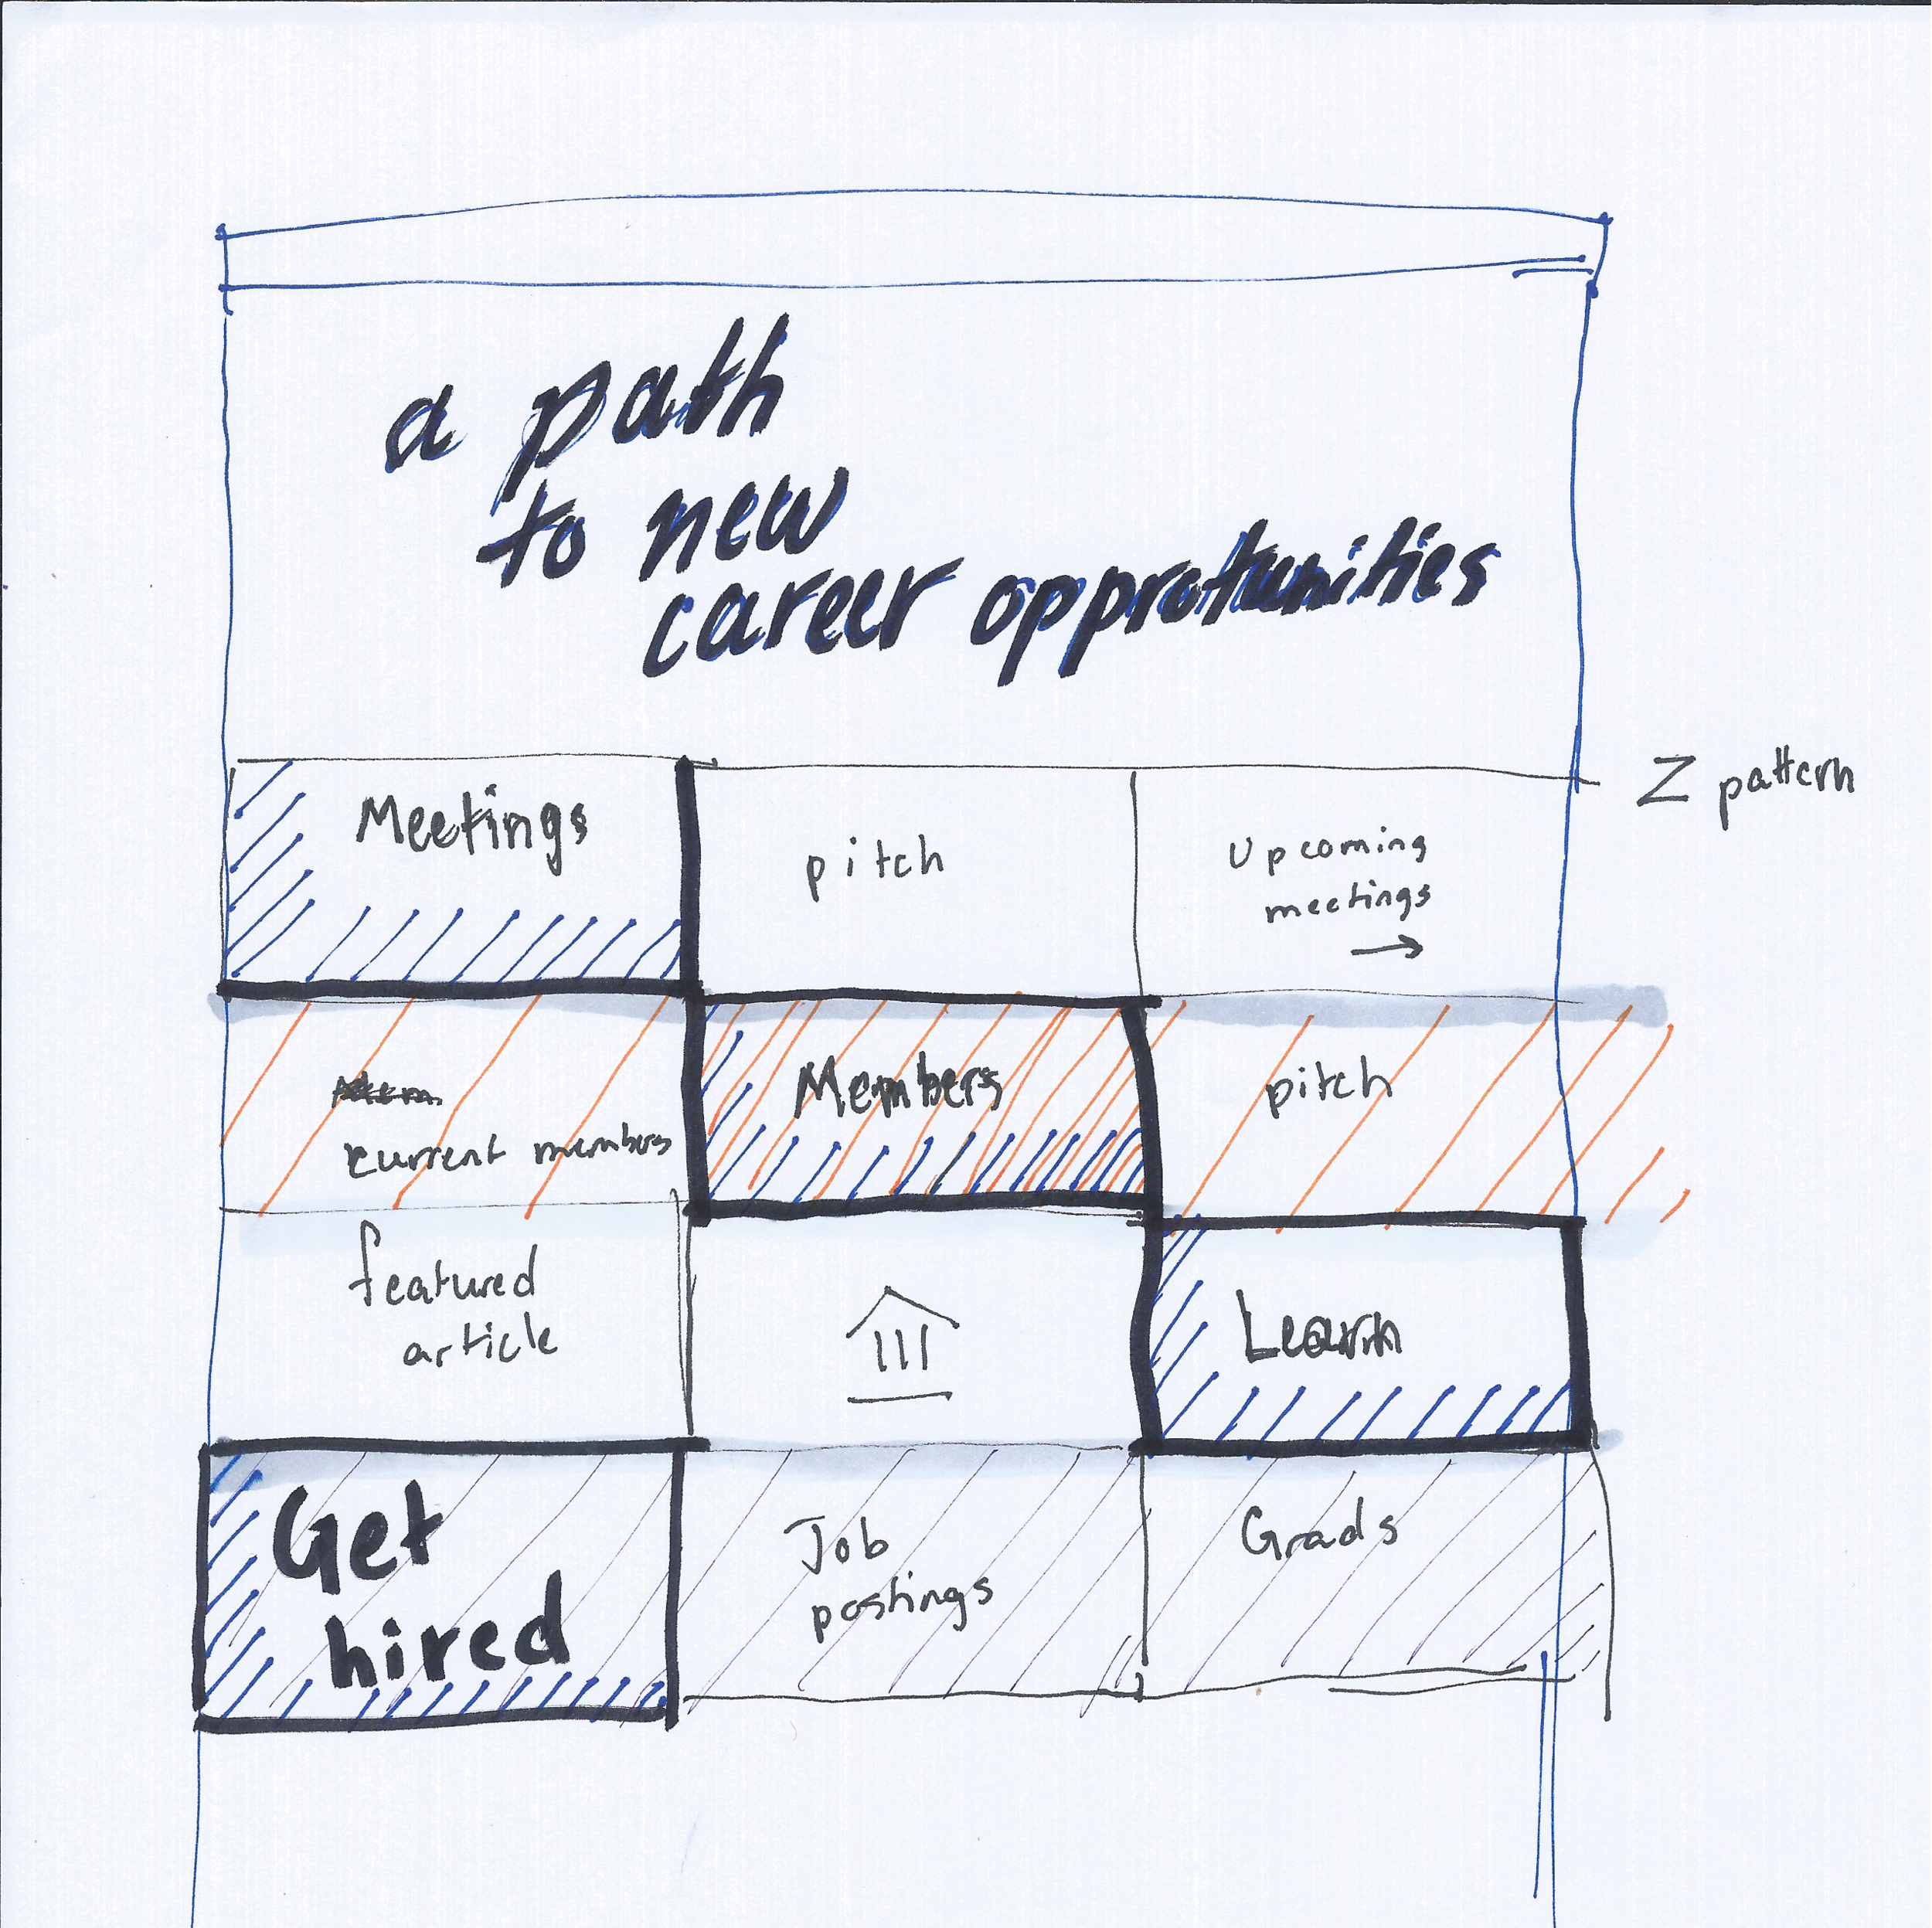 a path
to new
career opprotunities
Z pattern
Meetings
pitch
Upcoming
meetings
→
current members
Members
pitch
featured
article
Learn
Get
hired
Job
postings
Grads